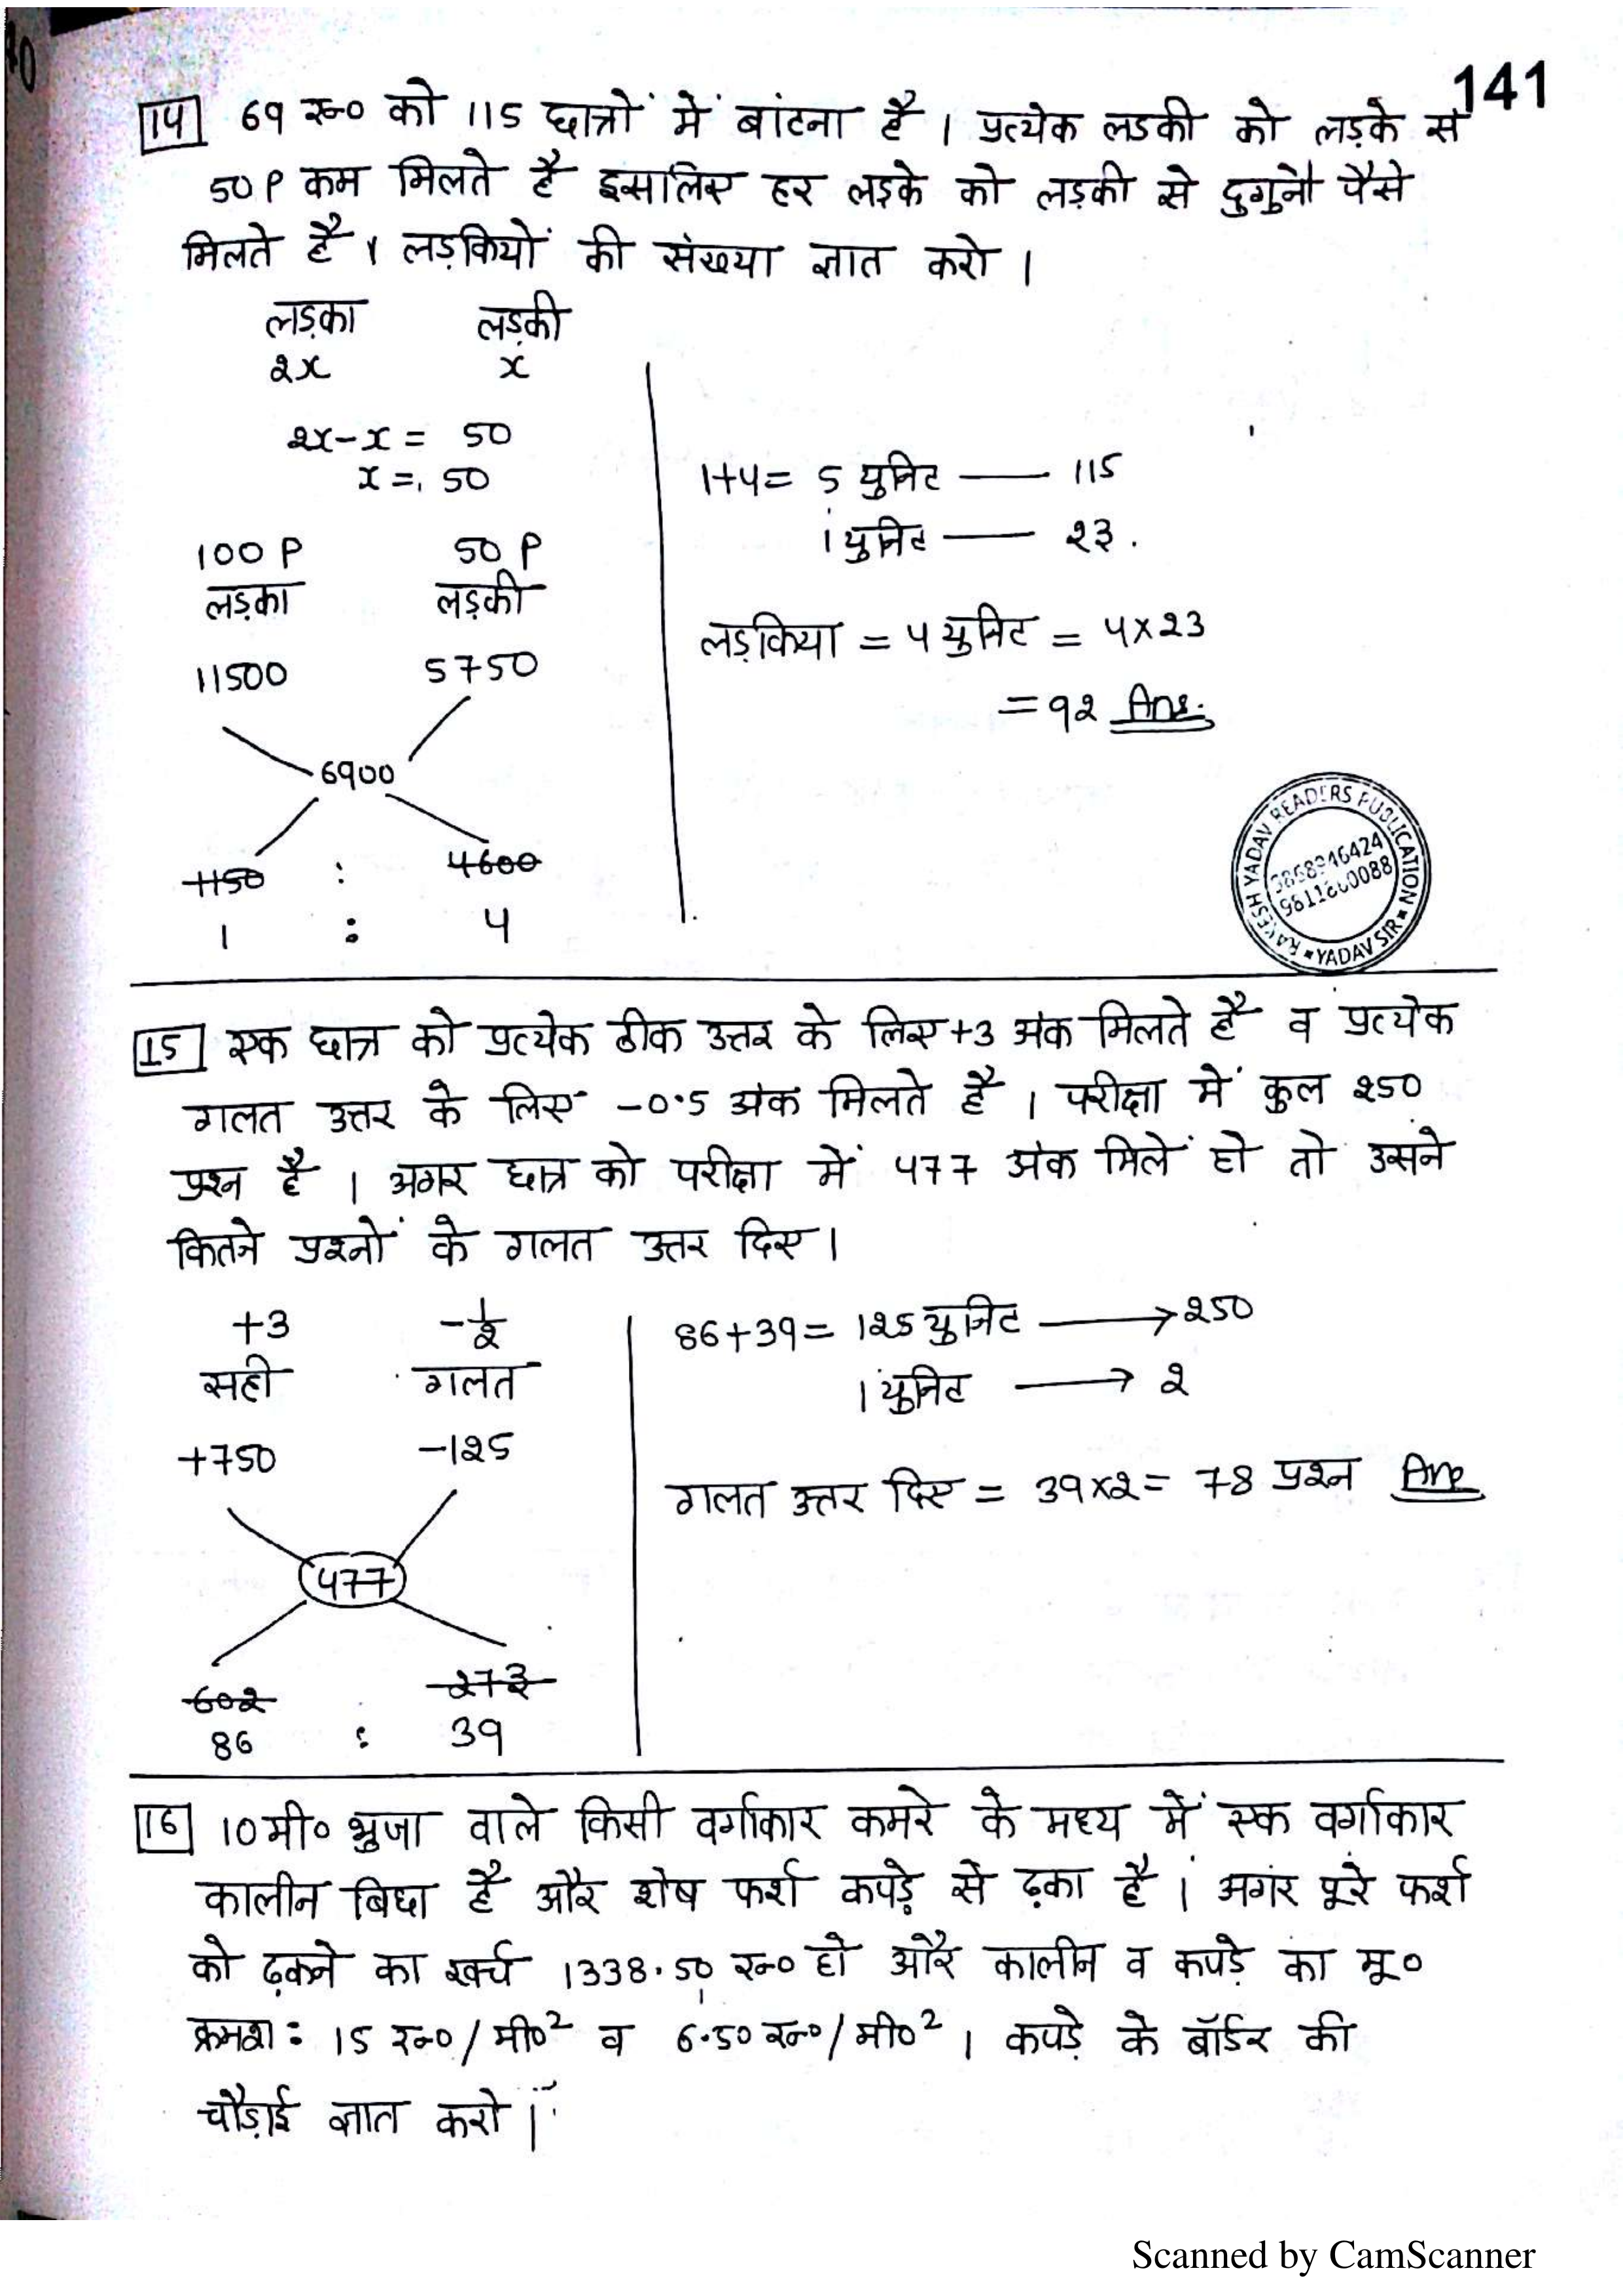 141
14 69 रू० को 115 छात्रों में बांटना है । प्रत्येक लडकी को लड़के से
50P कम मिलते है इसलिए हर लड़के को लड़की से दुगुने पैसे
मिलते है । लड़कियों की संख्या ज्ञात करो ।
लड़का लड़की
2x x
2x-x = 50
x = 50
100 P 50 P
लड़का लड़की
11500 5750
6900
1150 : 4600
1 : 4
1+4= 5 युनिट — 115
1 युनिट — 23.
लड़किया = 4 युनिट = 4×23
= 92 Ans.
RAKESH YADAV READERS PUBLICATION
YADAV SIR
15 एक छात्र को प्रत्येक ठीक उत्तर के लिए +3 अंक मिलते है व प्रत्येक
गलत उत्तर के लिए -0.5 अंक मिलते है । परीक्षा में कुल 250
प्रश्न है । अगर छात्र को परीक्षा में 477 अंक मिलें हो तो उसने
कितने प्रश्नों के गलत उत्तर दिए।
+3 -1/2
सही गलत
+750 -125
477
602 273
86 : 39
86+39= 125 युनिट → 250
1 युनिट → 2
गलत उत्तर दिए = 39×2= 78 प्रश्न Ans
16 10मी० भुजा वाले किसी वर्गाकार कमरे के मध्य में एक वर्गाकार
कालीन बिछा है और शेष फर्श कपड़े से ढ़का है । अगर पूरे फर्श
को ढ़कने का खर्च 1338.50 रू० हो और कालीन व कपड़े का मू०
क्रमश: 15 रू०/मी०² व 6.50 रू०/मी०² । कपड़े के बॉर्डर की
चौड़ाई ज्ञात करो ।
Scanned by CamScanner